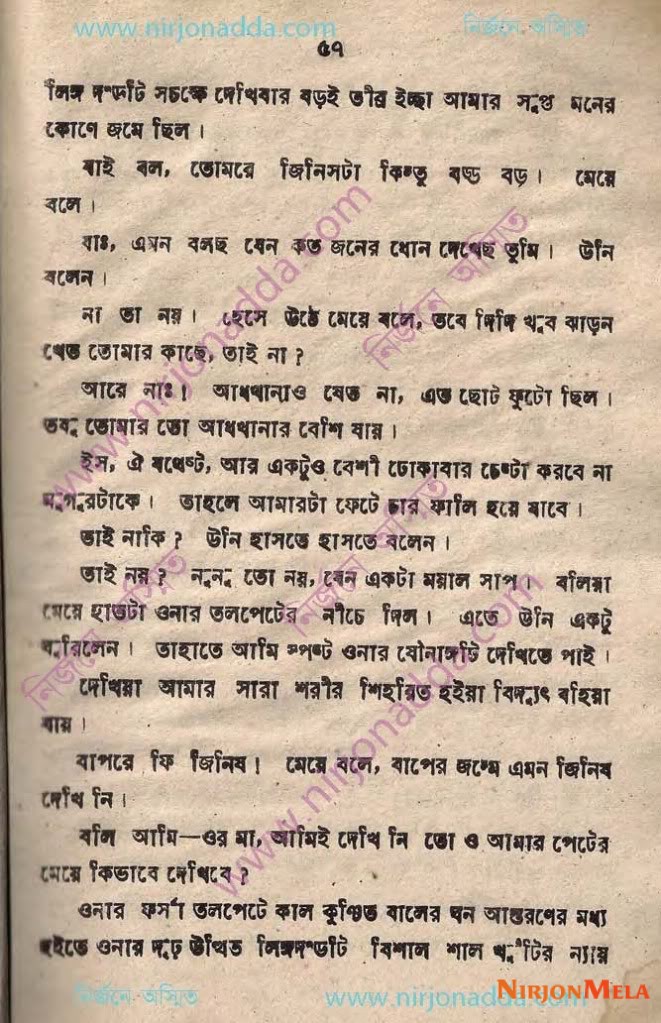 www.nirjonadda.com নির্জনে অস্মিত
৫৭
লিঙ্গ দণ্ডটি সচক্ষে দেখিবার বড়ই তীব্র ইচ্ছা আমার সুপ্ত মনের
কোণে জমে ছিল।
যাই বল, তোমরে জিনিসটা কিন্তু বড্ড বড়। মেয়ে
বলে।
বাঃ, এমন বলছ যেন কত জনের ধোন দেখেছ তুমি। উনি
বলেন।
না তা নয়। হেসে উঠে মেয়ে বলে, তবে দিদি খুব ঝাড়ন
খেত তোমার কাছে, তাই না?
আরে নাঃ! আধখানাও যেত না, এত ছোট ফুটো ছিল।
তবু তোমার তো আধখানার বেশি যায়।
ইস, ঐ যথেষ্ট, আর একটুও বেশী ঢোকাবার চেষ্টা করবে না
মুগুরটাকে। তাহলে আমারটা ফেটে চার ফালি হয়ে যাবে।
তাই নাকি? উনি হাসতে হাসতে বলেন।
তাই নয়? নুনু তো নয়, যেন একটা ময়াল সাপ। বলিয়া
মেয়ে হাতটা ওনার তলপেটের নীচে দিল। এতে উনি একটু
ঘুরিলেন। তাহাতে আমি স্পষ্ট ওনার যৌনাঙ্গটি দেখিতে পাই।
দেখিয়া আমার সারা শরীর শিহরিত হইয়া বিদ্যুৎ বহিয়া
যায়।
বাপরে কি জিনিষ! মেয়ে বলে, বাপের জন্মে এমন জিনিষ
দেখি নি।
বলি আমি—ওর মা, আমিই দেখি নি তো ও আমার পেটের
মেয়ে কিভাবে দেখিবে?
ওনার ফর্সা তলপেটে কাল কুঞ্চিত বালের ঘন আস্তরণের মধ্য
হইতে ওনার দৃঢ় উত্থিত লিঙ্গদণ্ডটি বিশাল শাল খুঁটির ন্যায়
নির্জনে অস্মিত www.nirjonadda.com NIRJONMELA